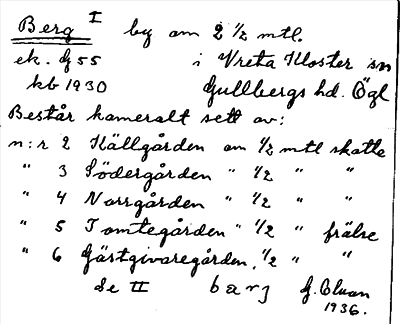 Berg I by om 2 1/2 mtl.
ek. G 55 i Vreta Kloster sn
kb 1930 Gullbergs hd. Ögl
Består kameralt sett av:
n:r 2 Källgården om 1/2 mtl skatte
" 3 Södergården " 1/2 " "
" 4 Norrgården " 1/2 " "
" 5 Tomtegården " 1/2 " frälse
" 6 Gästgivaregården, " 1/2 " "
Se II bærj G.
1936.